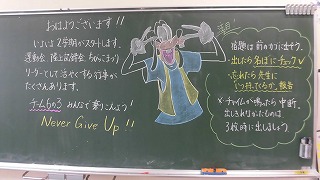 おはようございます!!
いよいよ2学期がスタートします。
運動会 陸上記録会
リーダーとして活やくする行事が
たくさんあります。
チーム6の3 みんなで乗りこえよう!
Never Give Up!!
宿題は前のカゴに出そう。
・出したら名ぼにチェック✓
・忘れたら先生に
「いつ持ってくるか」報告
※チャイムが鳴ったら中断。
出しきれなかったものは
3校時に出しましょう。